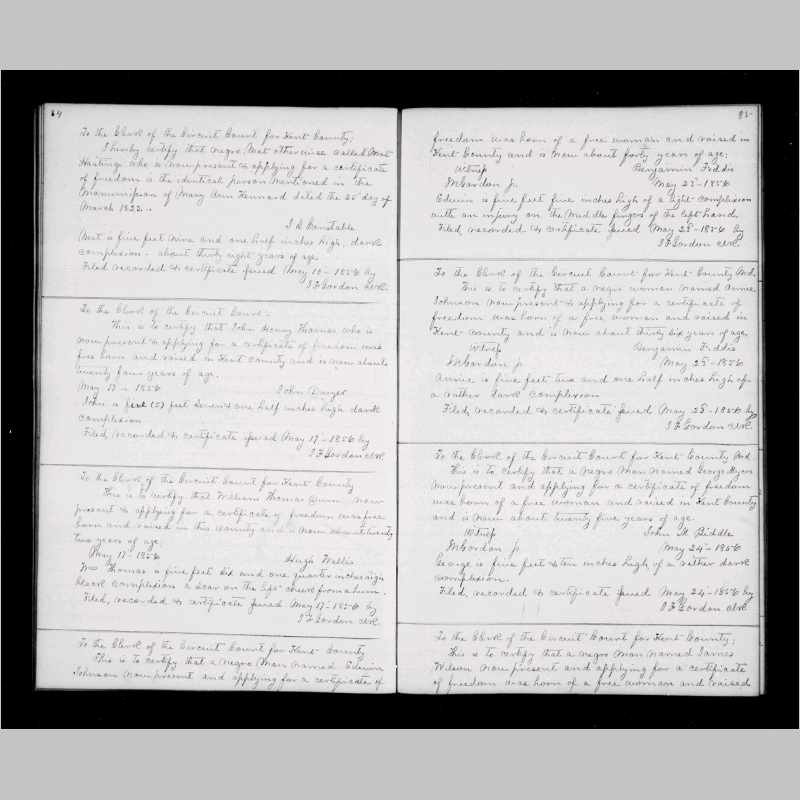 84
To the Clerk of the Circuit Court for Kent County;
I hereby certify that negro Nat otherwise called Nat
Hastings who is now present & applying for a certificate
of freedom is the identical person mentioned in the
Manumission of Mary Ann Kennard dated the 25 day of
March 1822..
Constable
Nat is five feet nine and one half inches high, dark
complexion. about thirty eight years of age.
Filed recorded & certificate issued May 10 - 1856 by
J F Gordon clk.
To the Clerk of the Circuit Court :-
This is to certify that John Henry Thomas who is
now present & applying for a certificate of freedom was
free born and raised in Kent County and is now about
twenty four years of age.
May 17 - 1856
John Dwyer
John is feet (5) feet seven & one half inches high dark
complexion
Filed, recorded & certificate issued May 17 - 1856 by
J F Gordon clk.
To the Clerk of the Circuit Court for Kent County
This is to certify that William Thomas Quinn now
present & applying for a certificate of freedom was free
born and raised in this County and is now about twenty
two years of age.
May 17 - 1856
Hugh Wallis
Wm Thomas is five feet six and one quarter inches high
black complexion a scar on the left cheek from a burn.
Filed, recorded & certificate issued May 17 - 1856 by
J F Gordon clk.
To the Clerk of the Circuit Court for Kent County
This is to certify that a negro man named Edwin
Johnson now present and applying for a certificate of
85
freedom was born of a free woman and raised in
Kent County and is now about forty years of age.
Witness Benjamin Fiddis
Gordon jr. May 23 - 1856
Edwin is five feet five inches high of a light complexion
with an injury on the middle finger of the left hand.
Filed, recorded & certificate issued May 23 - 1856 by
J F Gordon clk.
To the Clerk of the Circuit Court for Kent County Md.
This is to certify that a negro woman named Annie
Johnson now present & applying for a certificate of
freedom was born of a free woman and raised in
Kent County and is now about thirty six years of age.
Witness Benjamin Fiddis
Gordon jr May 23 - 1856
Annie is five feet two and one half inches high of
a rather dark complexion
Filed, recorded & certificate issued May 23 - 1856 by
J F Gordon clk.
To the Clerk of the Circuit Court for Kent County Md
This is to certify that a negro man named George Myers
now present and applying for a certificate of freedom
was born of a free woman and raised in Kent County
and is now about twenty five years of age.
Witness John M Biddle
Gordon jr. May 24 - 1856
George is five feet & ten inches high of a rather dark
complexion.
Filed, recorded & certificate issued May 24 - 1856 by
J F Gordon clk.
To the Clerk of the Circuit Court for Kent County;
This is to certify that a negro man named James
Wilson now present and applying for a certificate
of freedom was born of a free woman and raised